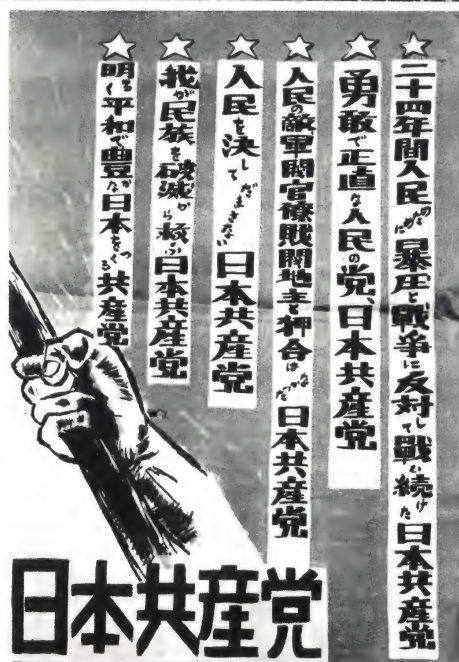 二十四年間人民のために暴圧と戦争に反対して戦い続けた日本共産党
勇敢で正直な人民の党、日本共産党
人民の敵軍閥官僚財閥地主と狎合はなかつた日本共産党
人民を決してだまさない日本共産党
我が民族を破滅から救ふ日本共産党
明るく平和で豊かな日本をつくる共産党
日本共産党